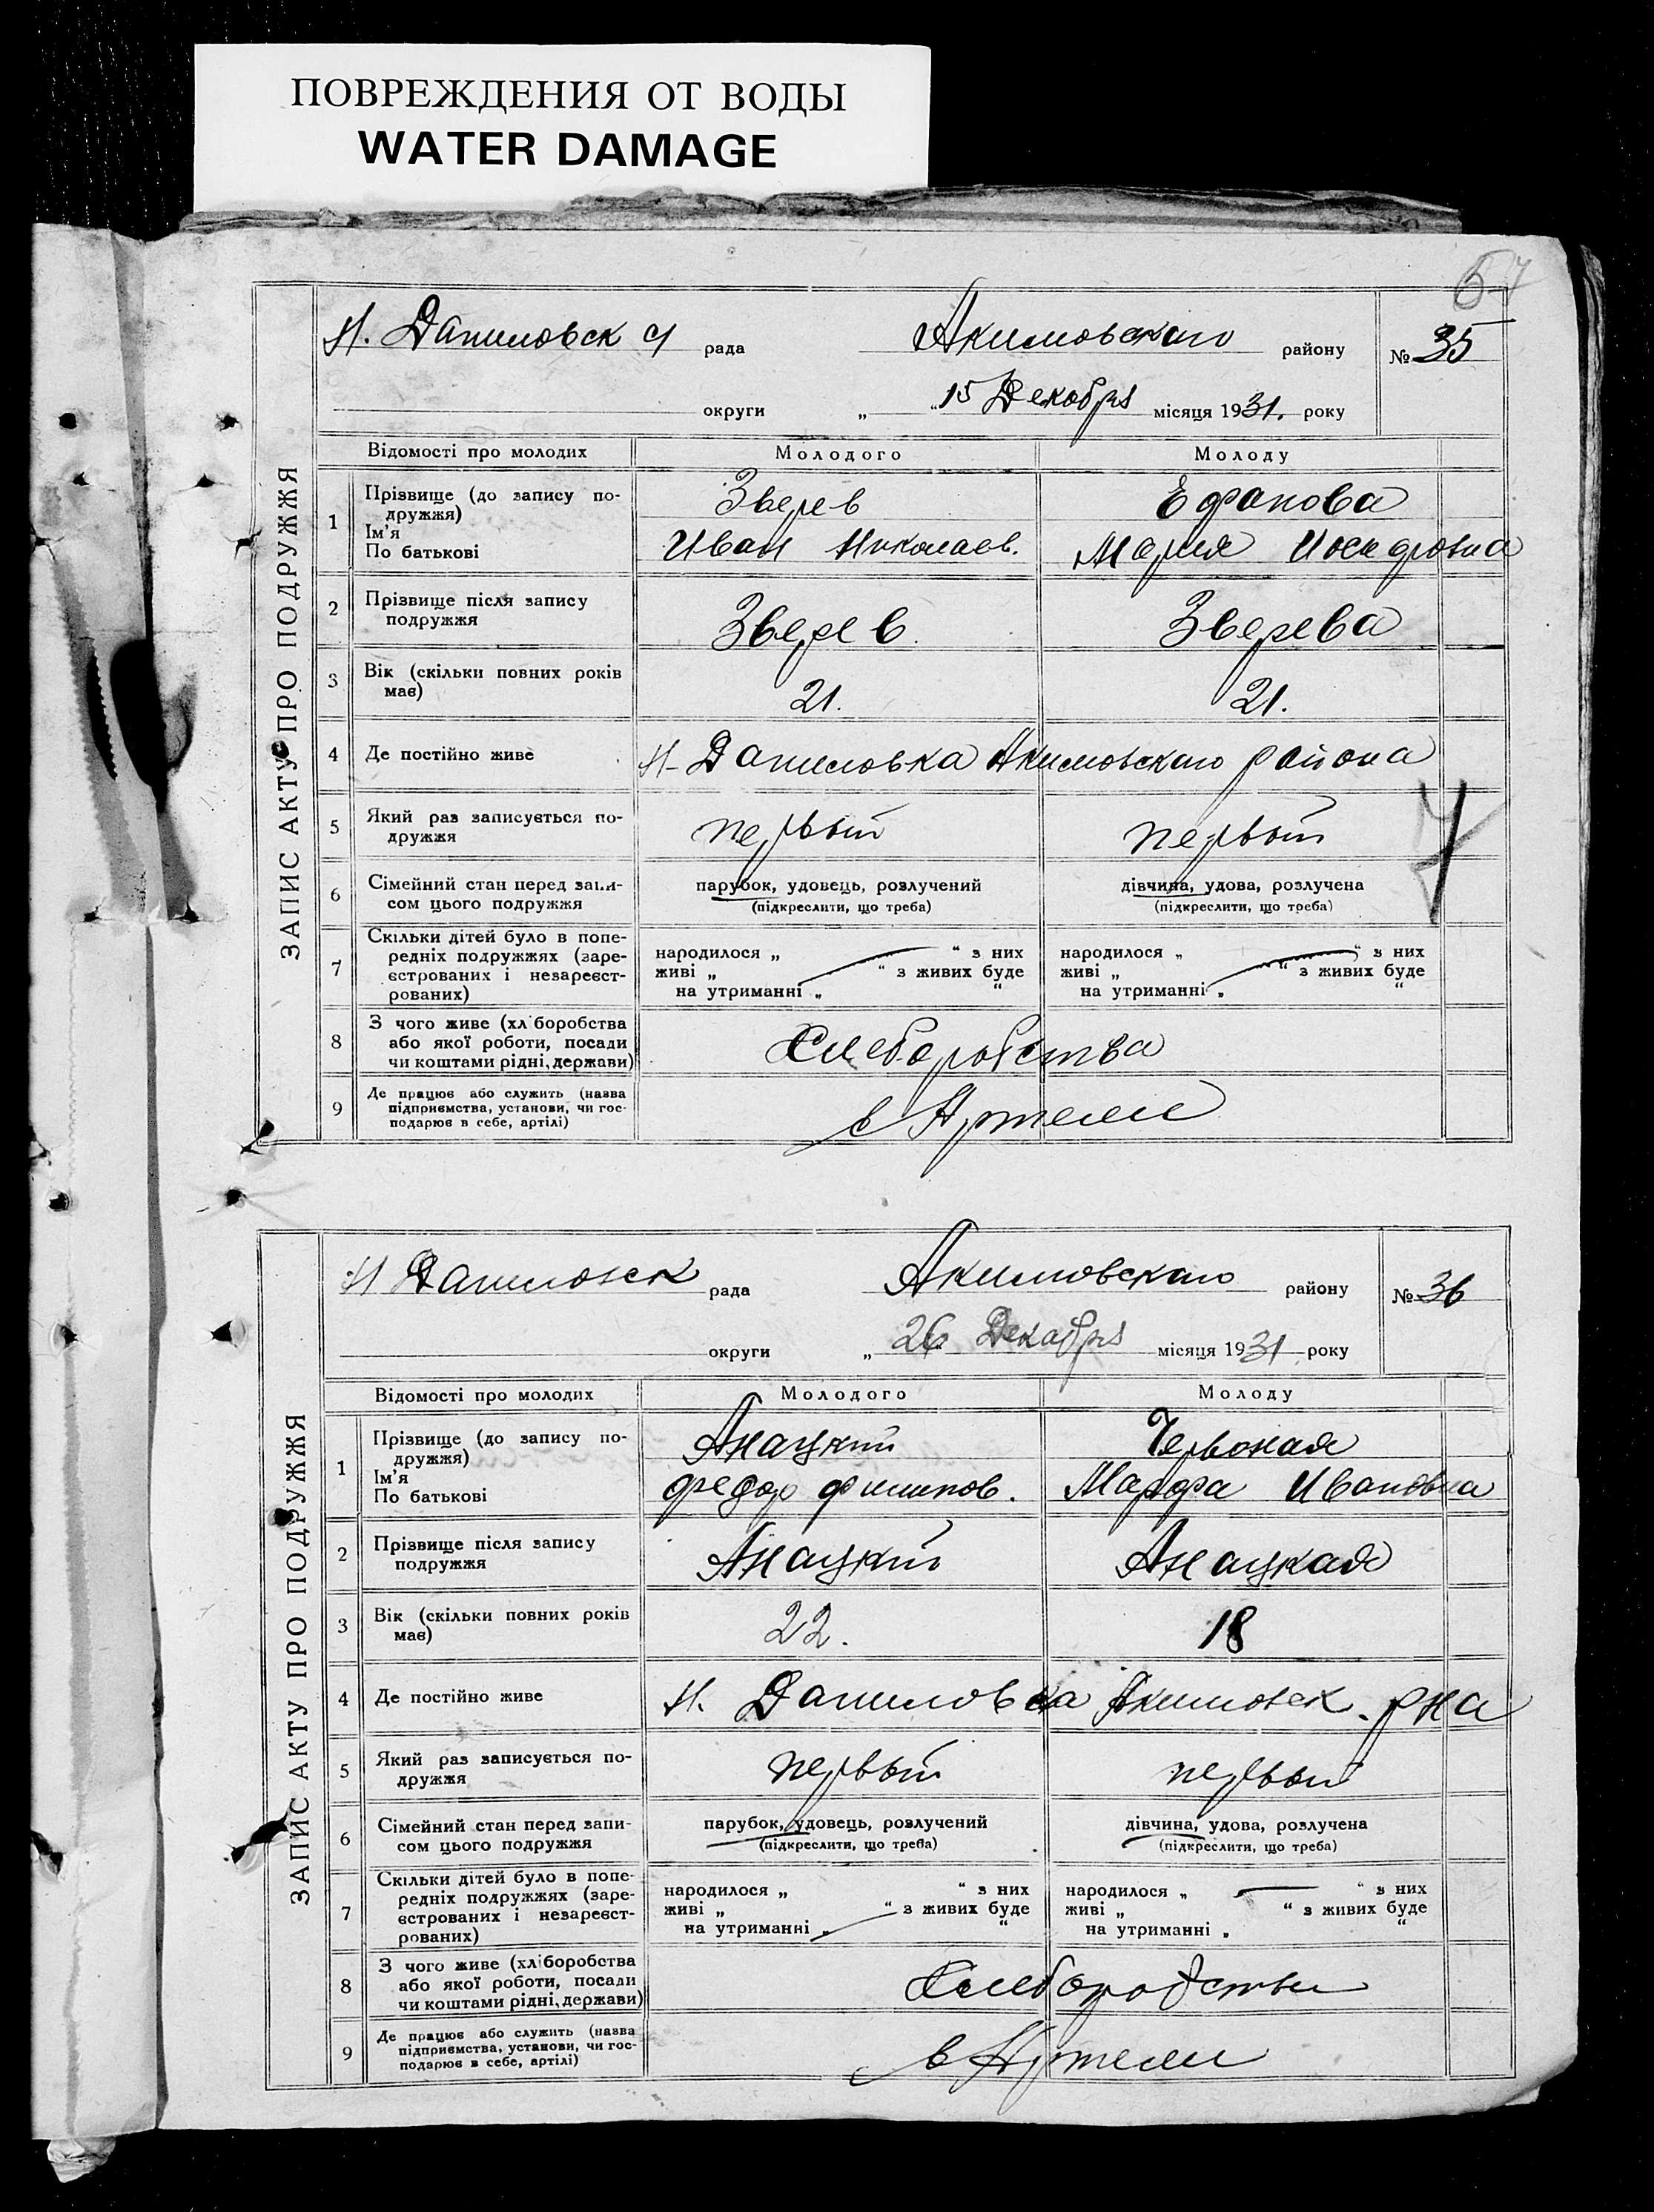 ПОВРЕЖДЕНИЯ ОТ ВОДЫ
WATER DAMAGE
57
ЗАПИС АКТУ ПРО ПОДРУЖЖЯ
Н. Даниловск рада Акимовского району № 35
округи „ 15 Декабря місяця 1931. року
Відомості про молодих Молодого Молоду
1 Прізвище (до запису по-
дружжя)
Ім'я
По батькові
Зверев
Иван Николаев.
Ефанова
Мария
2 Прізвище після запису
подружжя
Зверев. Зверева
3 Вік (скільки повних років
має)
21. 21.
4 Де постійно живе Н-Даниловка Акимовского района
5 Який раз записується по-
дружжя
первый первый
6 Сімейний стан перед запи-
сом цього подружжя
парубок, удовець, розлучений
(підкреслити, що треба)
дівчина, удова, розлучена
(підкреслити, що треба)
7 Скільки дітей було в попе-
редніх подружжях (заре-
єстрованих і незареєст-
рованих)
народилося „ “ з них
живі „ “ з живих буде
на утриманні „ “
народилося „ “ з них
живі „ “ з живих буде
на утриманні „ “
8 З чого живе (хліборобства
або якої роботи, посади
чи коштами рідні, держави)
Хлеборобства
9 Де працює або служить (назва
підприємства, установи, чи гос-
подарює в себе, артілі)
в Артели
ЗАПИС АКТУ ПРО ПОДРУЖЖЯ
Н Даниловск рада Акимовского району № 36
округи „ 26 Декабря місяця 1931 року
Відомості про молодих Молодого Молоду
1 Прізвище (до запису по-
дружжя)
Ім'я
По батькові
Анацкий
Федор Филипов.
Червоная
Марфа Ивановна
2 Прізвище після запису
подружжя
Анацкий Анацкая
3 Вік (скільки повних років
має)
22. 18
4 Де постійно живе Н. Даниловка Акимовск. рна
5 Який раз записується по-
дружжя
первый первый
6 Сімейний стан перед запи-
сом цього подружжя
парубок, удовець, розлучений
(підкреслити, що треба)
дівчина, удова, розлучена
(підкреслити, що треба)
7 Скільки дітей було в попе-
редніх подружжях (заре-
єстрованих і незареєст-
рованих)
народилося „ “ з них
живі „ “ з живих буде
на утриманні „ “
народилося „ “ з них
живі „ “ з живих буде
на утриманні „ “
8 З чого живе (хліборобства
або якої роботи, посади
чи коштами рідні, держави)
9 Де працює або служить (назва
підприємства, установи, чи гос-
подарює в себе, артілі)
в Артели